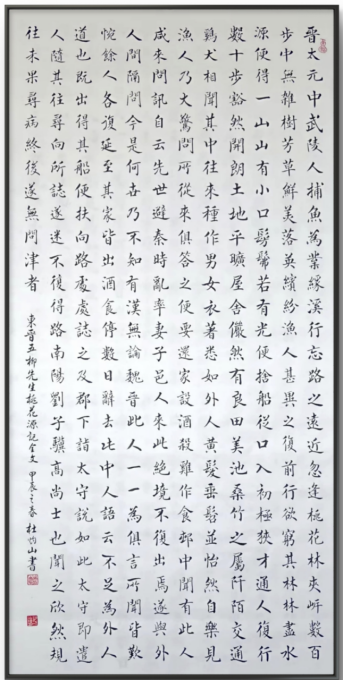 晉太元中武陵人捕魚為業緣溪行忘路之遠近忽逢桃花林夾岸數百
步中無雜樹芳草鮮美落英繽紛漁人甚異之復前行欲窮其林林盡水
源便得一山山有小口髣髴若有光便捨船從口入初極狹才通人復行
數十步豁然開朗土地平曠屋舍儼然有良田美池桑竹之屬阡陌交通
鷄犬相聞其中往來種作男女衣著悉如外人黃髮垂髫並怡然自樂見
漁人乃大驚問所從來俱答之便要還家設酒殺雞作食邨中聞有此人
咸來問訊自云先世避秦時亂率妻子邑人來此絕境不復出焉遂與外
人間隔問今是何世乃不知有漢無論魏晉此人一一為俱言所聞皆歎
惋餘人各復延至其家皆出酒食停數日辭去此中人語云不足為外人
道也既出得其船便扶向路處處誌之及郡下詣太守說如此太守即遣
人隨其往尋向所誌遂迷不復得路南陽劉子驥高尚士也聞之欣然規
往未果尋病終後遂無問津者
東晉五柳先生桃花源記全文 甲辰之春 杜山書